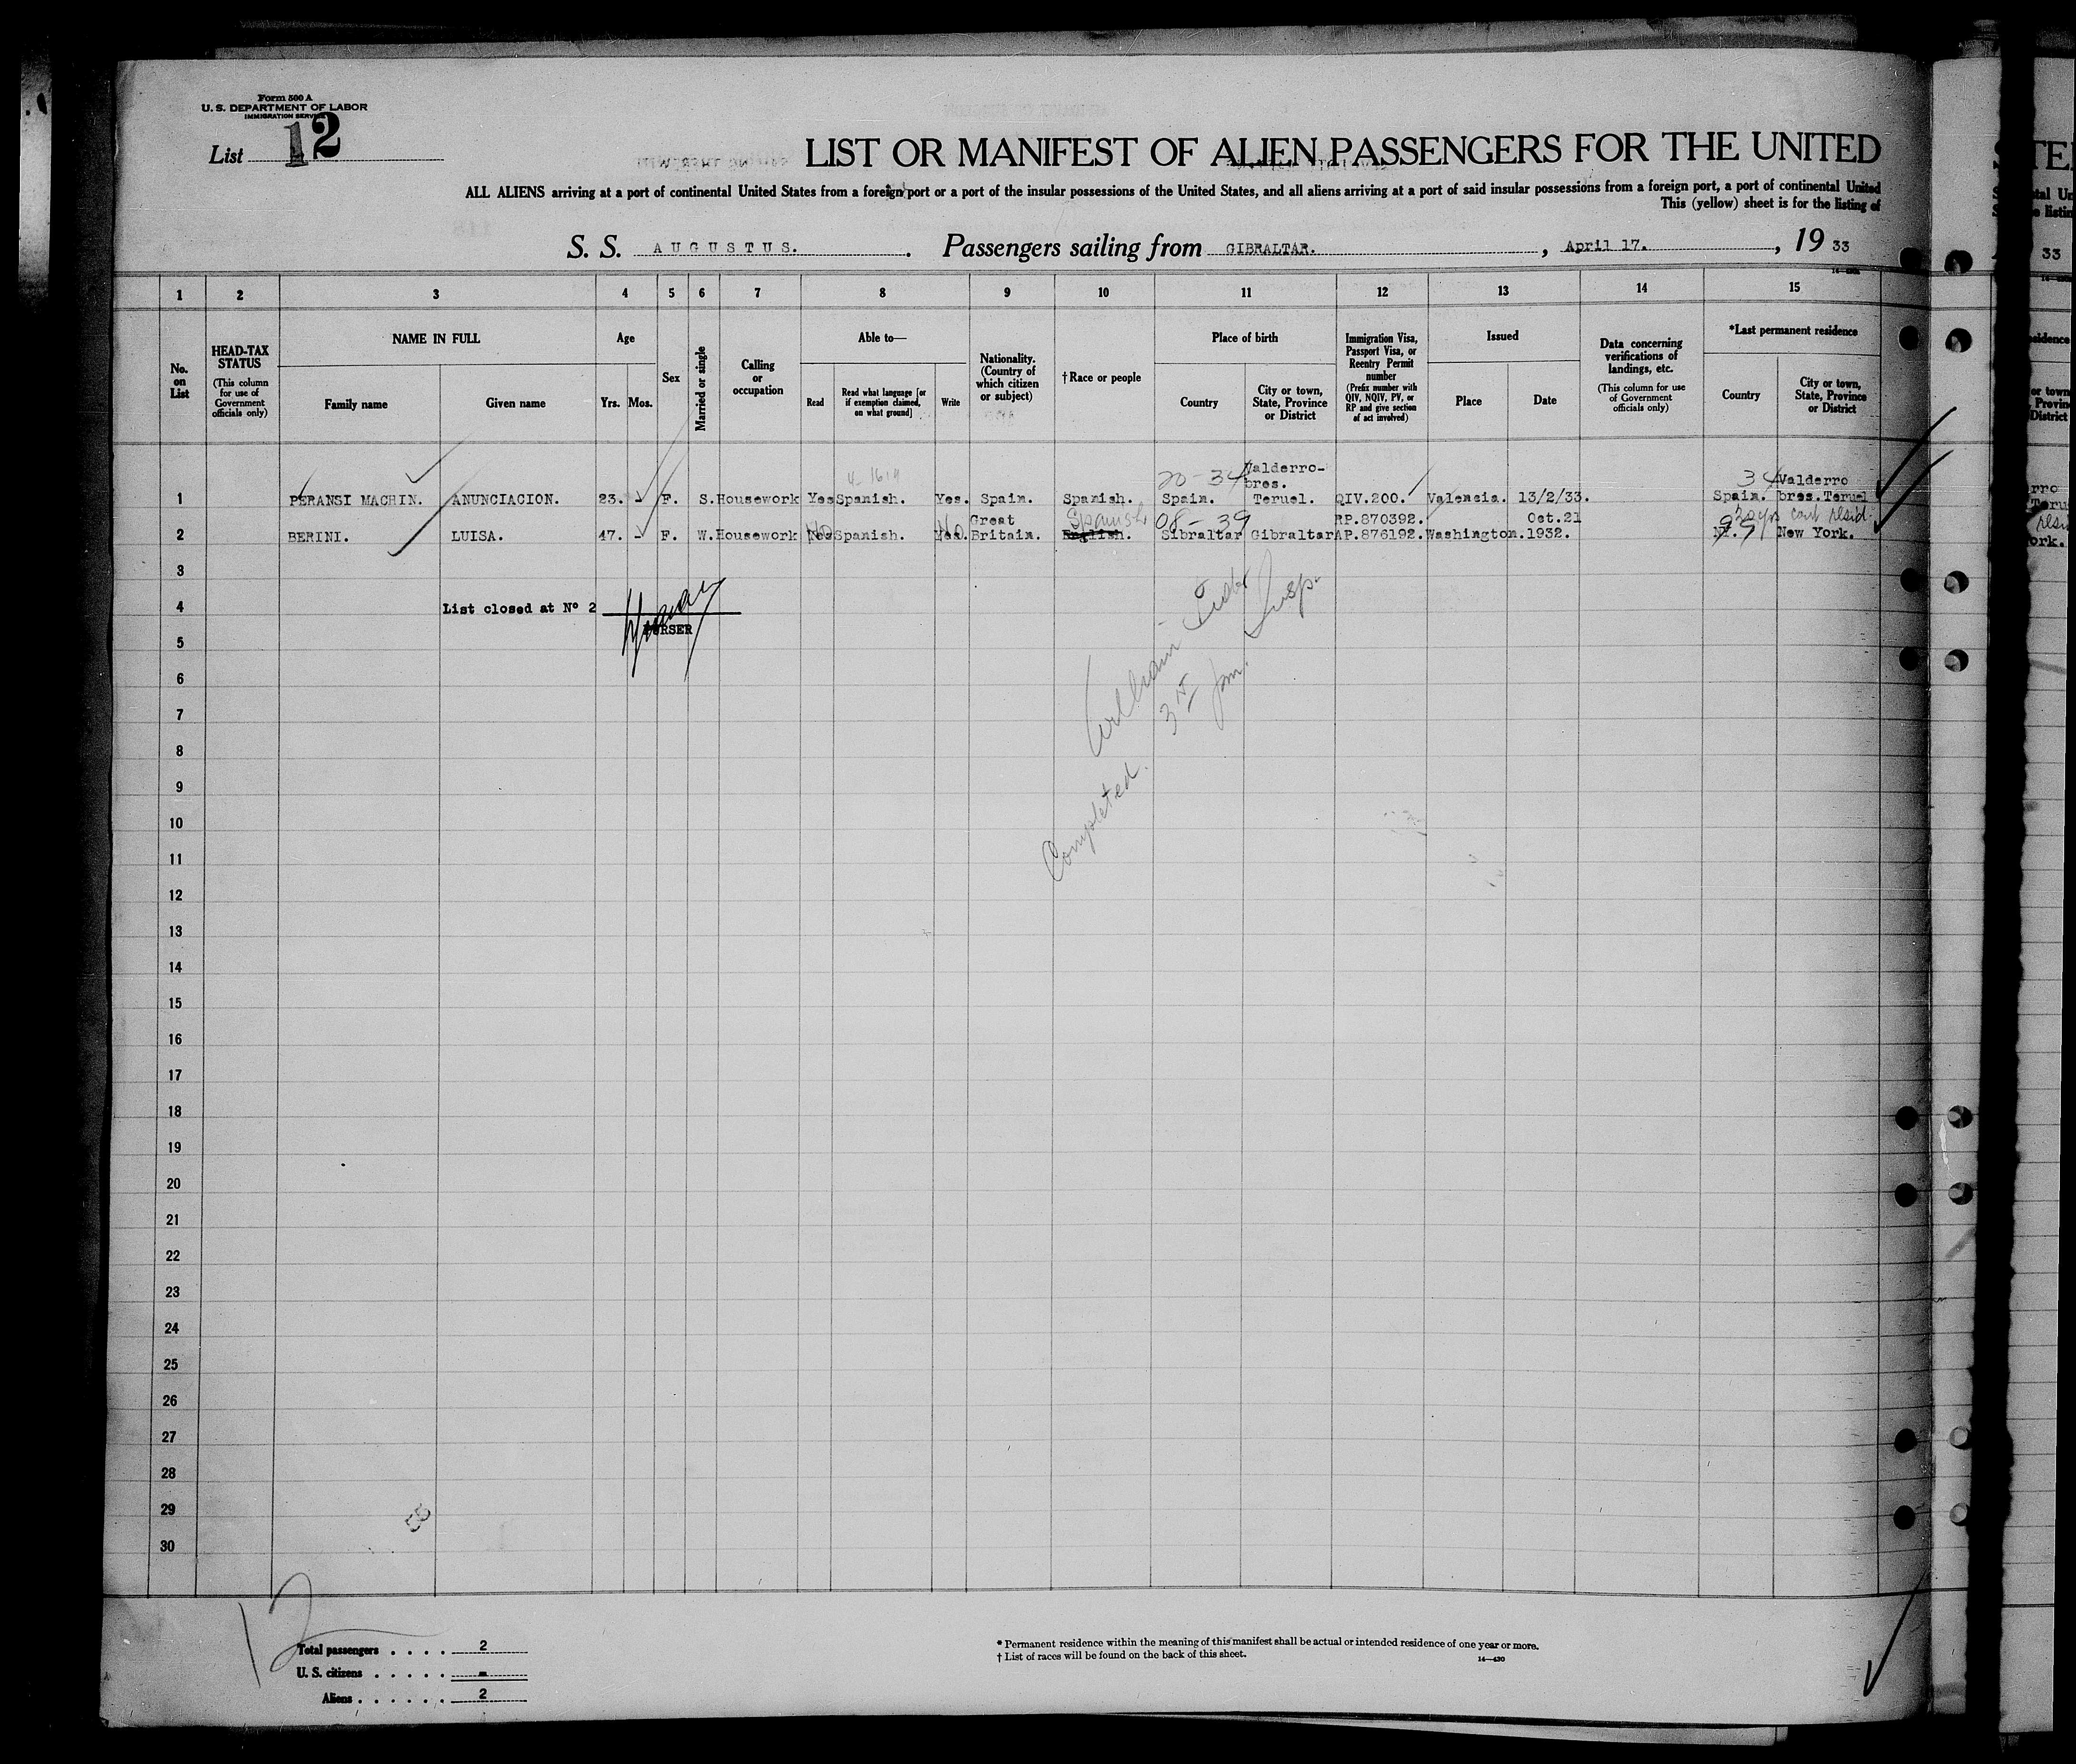 Form 500 A
U. S. DEPARTMENT OF LABOR
IMMIGRATION SERVICE
List 12
LIST OR MANIFEST OF ALIEN PASSENGERS FOR THE UNITED
ALL ALIENS arriving at a port of continental United States from a foreign port or a port of the insular possessions of the United States, and all aliens arriving at a port of said insular possessions from a foreign port, a port of continental United
This (yellow) sheet is for the listing of
S. S. AUGUSTUS. Passengers sailing from GIBRALTAR. , April 17. , 19 33
1 2 3 4 5 6 7 8 9 10 11 12 13 14 15
No. on List
HEAD-TAX STATUS
(This column for use of Government officials only)
NAME IN FULL
Family name
Given name
Age
Yrs. Mos.
Sex
Married or single
Calling or occupation
Able to—
Read
Read what language [or if exemption claimed, on what ground]
Write
Nationality. (Country of which citizen or subject)
†Race or people
Place of birth
Country
City or town, State, Province or District
Immigration Visa, Passport Visa, or Reentry Permit number
(Prefix number with QIV, NQIV, PV, or RP and give section of act involved)
Issued
Place
Date
Data concerning verifications of landings, etc.
(This column for use of Government officials only)
*Last permanent residence
Country
City or town, State, Province or District
20-34 Valderro- 34 Valderro
bres.
1 PERANSI MACHIN. ANUNCIACION. 23. - F. S. Housework Yes Spanish. Yes. Spain. Spanish. Spain. Teruel. QIV.200. Valencia. 13/2/33. Spain. bres.Teruel
Great Spanish 08-39 RP.870392. Oct.21 20 yrs cont resid.
2 BERINI. LUISA. 47. - F. W. Housework No Spanish. No. Britain. English. Gibraltar Gibraltar AP.876192. Washington. 1932. NY. 99 New York.
3
4 List closed at Nº 2
PURSER
5
6
7
8
9
10
11
12
13
14
15
16
17
18
19
20
21
22
23
24
25
26
27
28
29
30
Completed.
William
Insp.
12
Total passengers . . . . 2
U. S. citizens . . . . . -
Aliens . . . . . . 2
* Permanent residence within the meaning of this manifest shall be actual or intended residence of one year or more.
† List of races will be found on the back of this sheet.
14—430